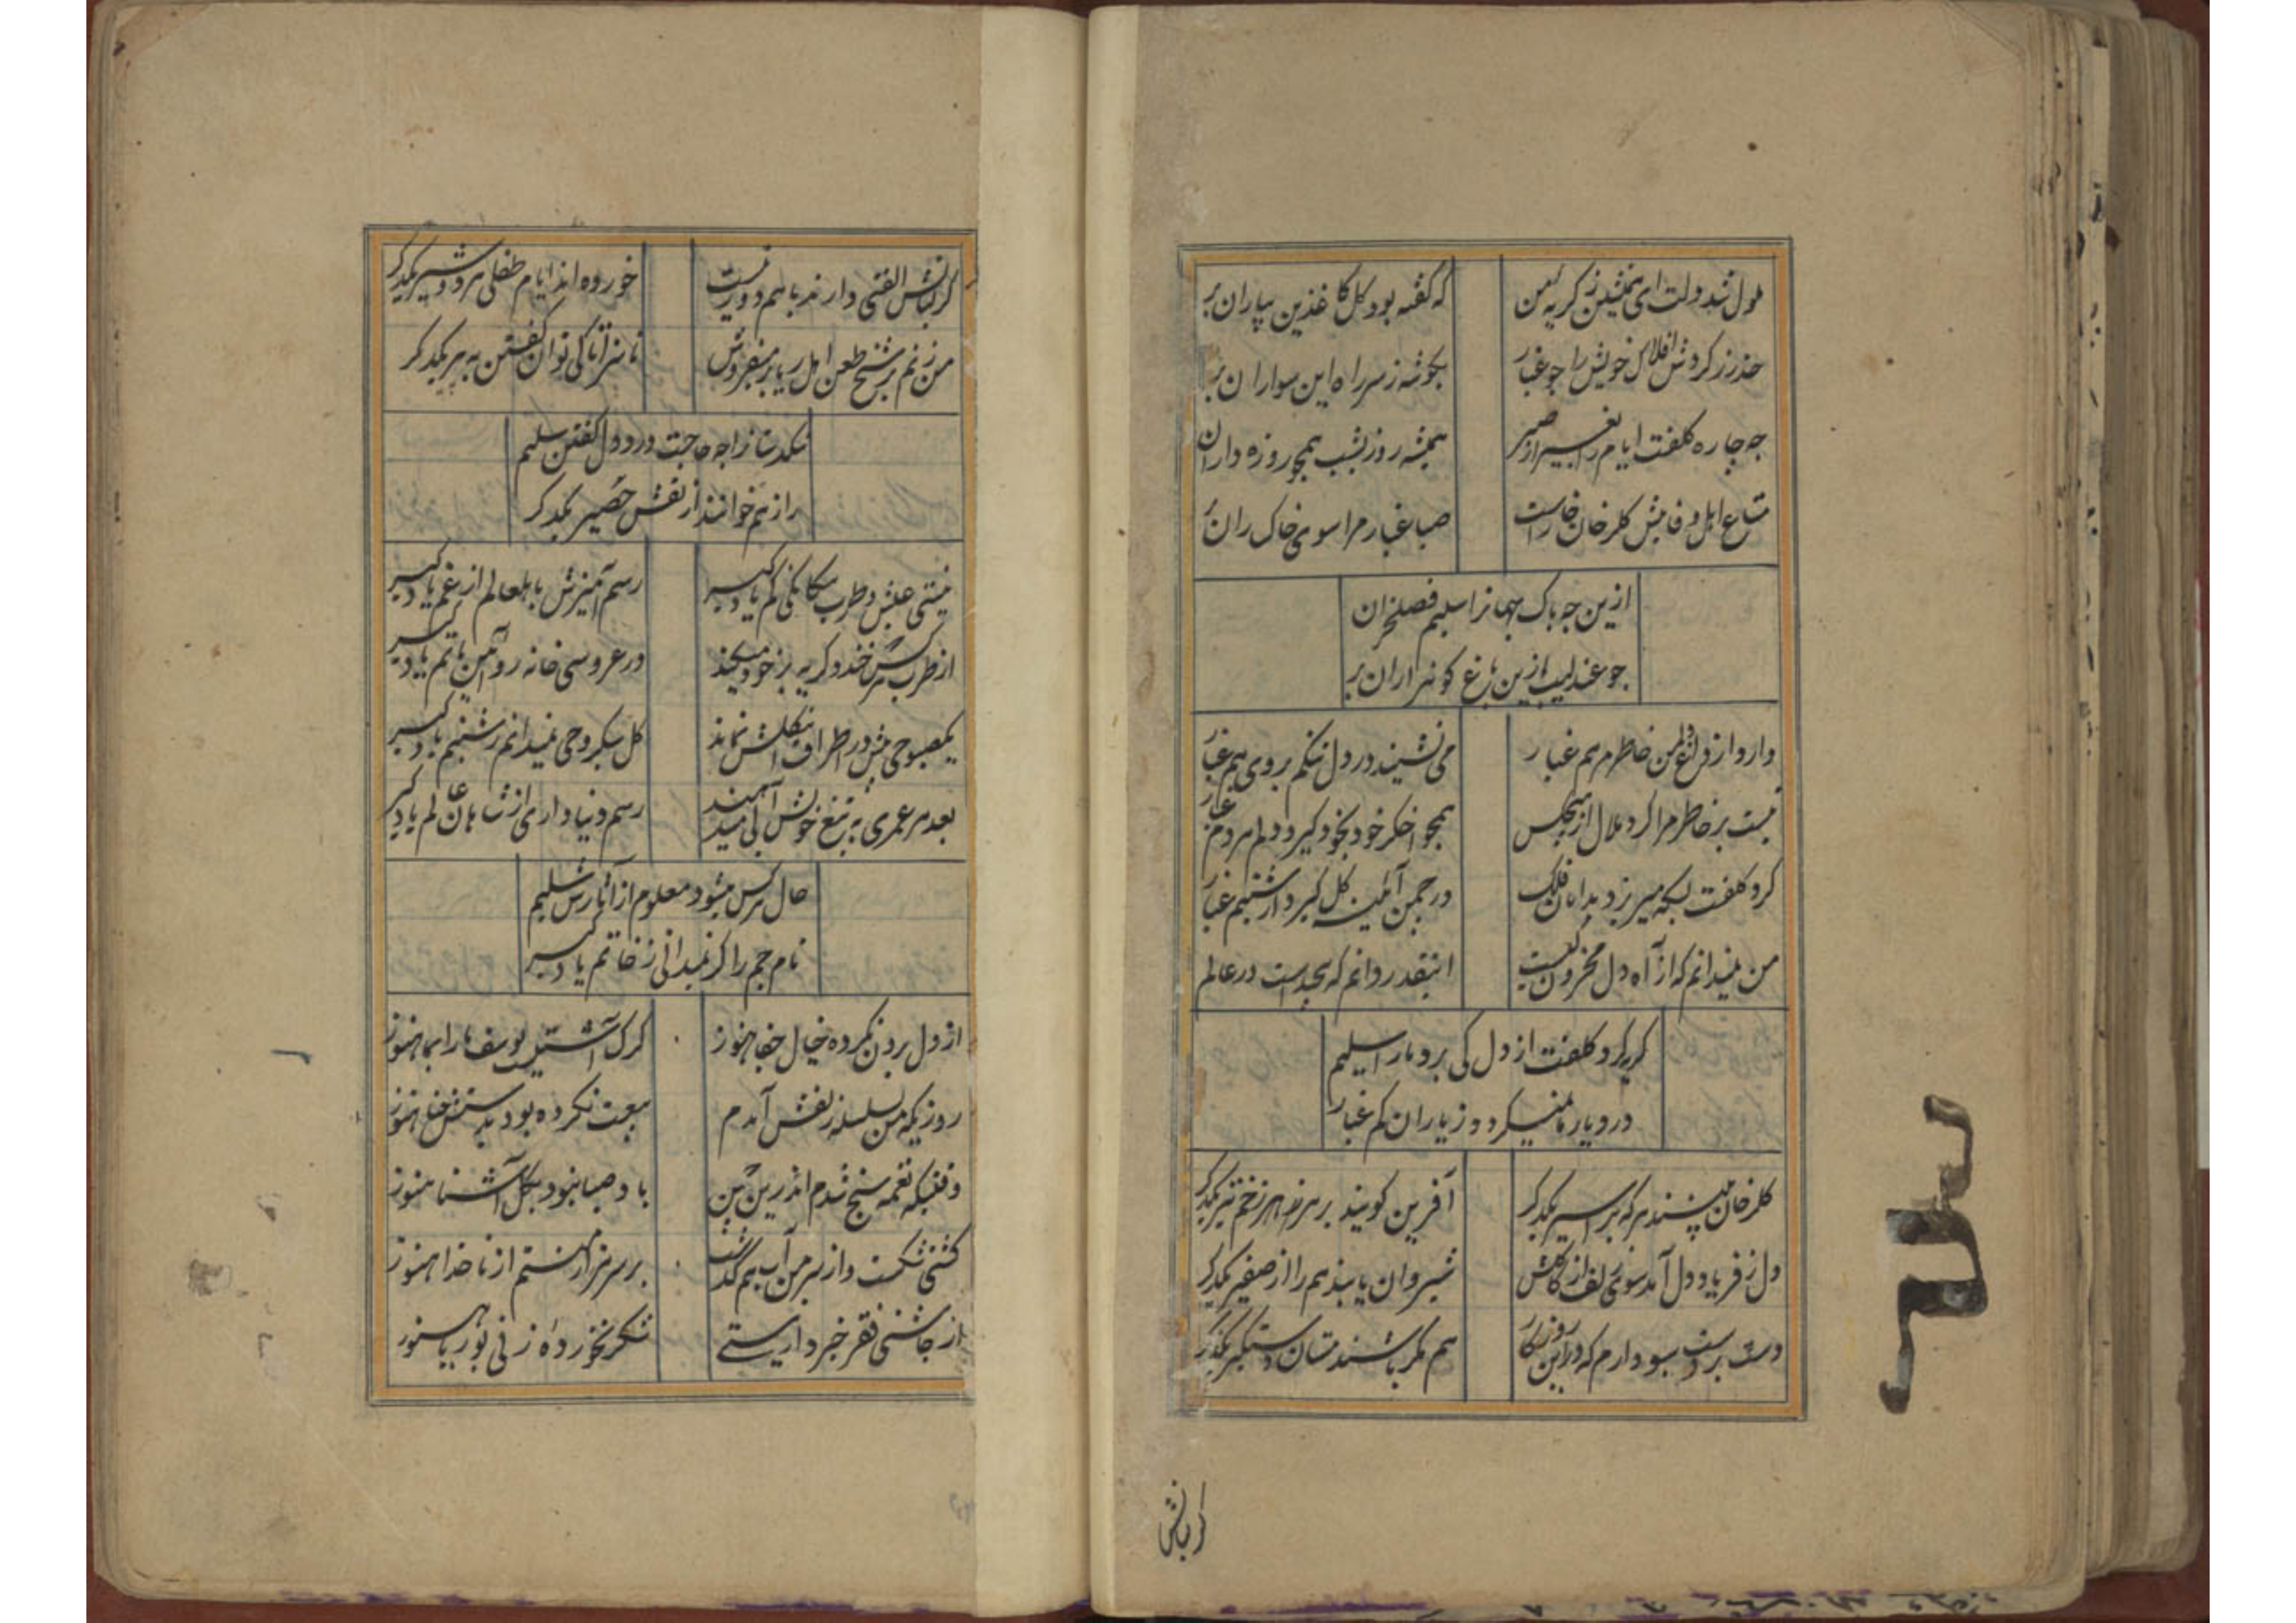 ملول شد دولت ای همنشین ز گریه من
که گفته بود گل کاغذین بباران بر
حذر ز گردش افلاک خویش را چو غبار
بگوشه ز سر راه این سواران بر
چه چاره کلفت ایام را بغیر از صبر
همیشه روز بشب همچو روزه داران بر
متاع اهل وفا پیش گلرخان خاکست
صبا غبار مرا سوی خاکساران بر
ازین چه باک سلیم فصل خزان
چو عندلیب ازین باغ گو هزاران بر
دارد از من خاطرم هم غبار
می نشیند در دل تنگم بروی هم غبار
نیست بر خاطر مرا گرد ملال از هیچکس
همچو اخگر خود بخود گیرد دلم هر دم غبار
گرد کلفت بسکه میریزد بدامان فلک
در چمن آئینه گل گیرد از شبنم غبار
من نمیدانم که از آه دل محزون کیست
اینقدر دانم که پیچیدست در عالم
گریه گرد کلفت از دل کی برد ما را سلیم
در دیار ما نمیگردد ز باران کم غبار
گلرخان میپسندند هر که بر اسیر یکدگر
آفرین گویند بر هم زخم تیر یکدگر
دل ز فریاد دل آمد سوی زلف از کاکلش
شبروان یابند هم را از صفیر یکدگر
دست بر دست سبو دارم که در این روزگار
هم مگر باشند مستان دستگیر یکدگر
گر لباسش
گر لباسش الفتی دارند با هم دور نیست
خورده اند ایام طفلی هر دو شیر یکدگر
من زنم بر شیخ طعن اهل ریا بر میفروش
ناسزا تا کی توان گفتن به پیر یکدگر
را چه حاجت درد دل گفتن سلیم
راز هم خوانند از نقش حصیر یکدگر
نیستی عیش و طرب بیگانگی کم یاد گیر
رسم آمیزش باهل عالم از غم یاد گیر
از طرب هر کس خندد گریه بر خود میکند
در عروسی خانه رو آیین ماتم یاد گیر
یک صبوحی بیش در اطراف گلشن نماند
گل سبکروحی نمیدانم ز شبنم یاد گیر
بعد هر عمری به تیغ خویش آبی میدهند
رسم دنیا داری از شاهان عالم یاد گیر
حال هر کس میشود معلوم از آثارش سلیم
نام جم را گر نمیدانی ز خاتم یاد گیر
از دل برون نکرده خیال جفا هنوز
گرگ آشتیست یوسف ما را بما هنوز
روزیکه من بسلسله زلفش آمدم
بیعت نکرده بود بدستش حنا هنوز
وقتیکه نغمه سنج شدم اندرین چمن
باد صبا نبود بگل آشنا هنوز
کشتی شکست و از سر من آب هم گذشت
بر سر هزار منتم از ناخدا هنوز
از چاشنی فقر خبردار نیستی
شکر نخورده ز نی بوریا هنوز